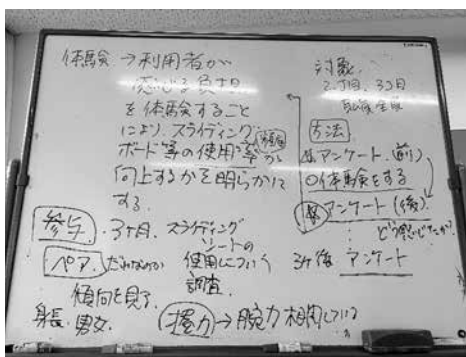 体験→利用者が
感じる負担
を体験すること
により、スライディング
ボード等の使用率が
向上するかを明らかに
する。
参与 ・3ヶ月、スライディング
シートの
使用について
調査。
ペア
傾向を見る
身長、男女
握力→腕力 相関している
対象
2丁目、3丁目
方法
アンケート(前)
〇体験をする
アンケート(後)
どう感じたか
3ヶ後 アンケート